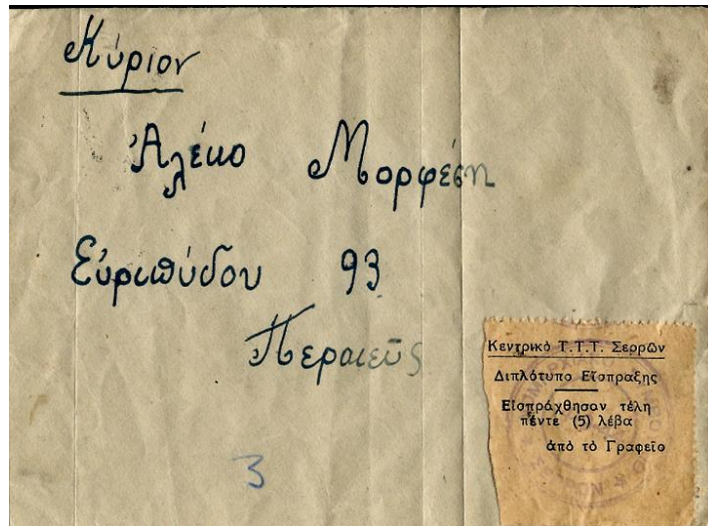 Κύριον
Ἀλέκο Μορφέση
Εὐριπύδου 93
Περαιεῦς
3
Κεντρικὸ Τ.Τ.Τ. Σερρῶν
Διπλότυπο Εἴσπραξης
Εἰσπράχθησαν τέλη
πέντε (5) λέβα
ἀπὸ τὸ Γραφεῖο